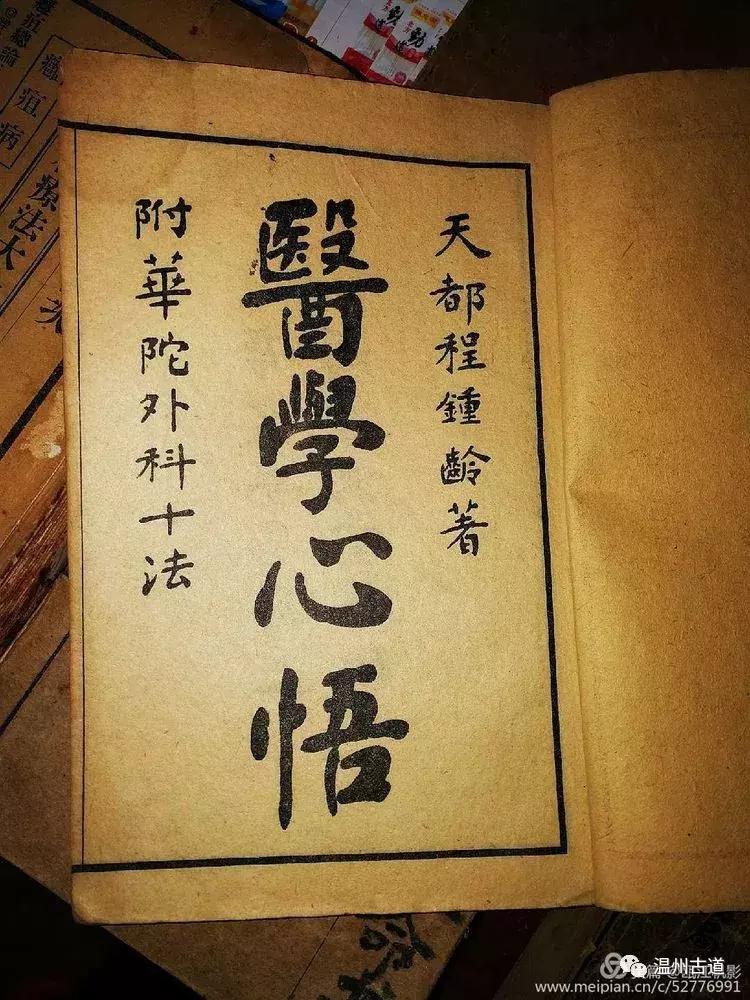 天都程鍾齡著
醫學心悟
附華陀外科十法
疽病
療法大
温州古道
www.meipian.cn/c/52776991